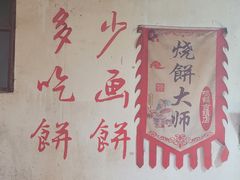 少画餅
多吃餅
烧餅大师